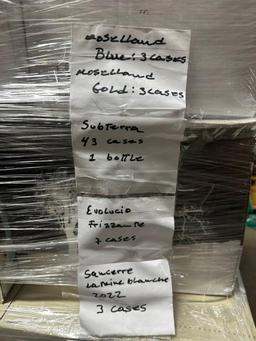 Moselland
Blue: 3 cases
Moselland
Gold: 3 cases
Subterra
43 cases
1 bottle
Evolucio
frizzante
7 cases
Sancerre
La Reine Blanche
2022
3 cases